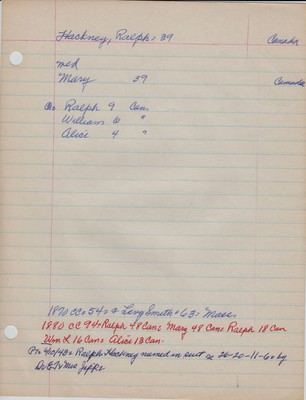 Hackney, Ralph = 39 Canada
med
Mary 39 Canada
Ch: Ralph 9 Can.
William 6 "
Alice 4 "
1870 cc = 54 = Levy Smith = 63 = Mass.
1880 CC 94 = Ralph 48 Can: Mary 48 Can: Ralph 18 Can
Wm L 16 Can: Alice 13 Can.
Ralph Hackney named in suit 20-20-11-6 = by
Mrs Jeffs